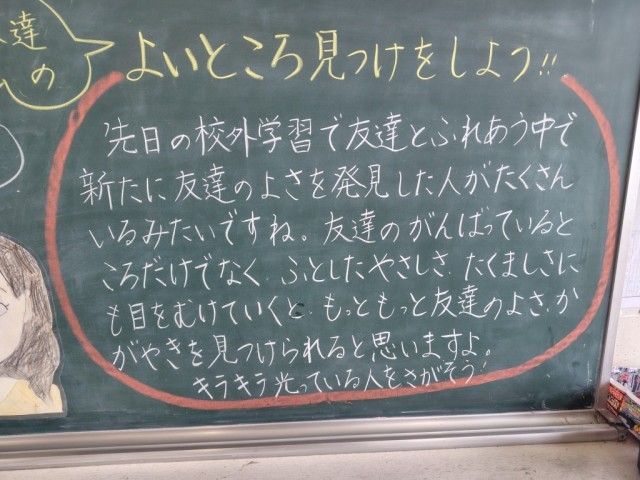 達
の
よいところ見つけをしよう!!
先日の校外学習で友達とふれあう中で
新たに友達のよさを発見した人がたくさん
いるみたいですね。友達のがんばっていると
ころだけでなく、ふとしたやさしさ、たくましさに
も目をむけていくと、もっともっと友達のよさ、か
がやきを見つけられると思いますよ。
キラキラ光っている人をさがそう!